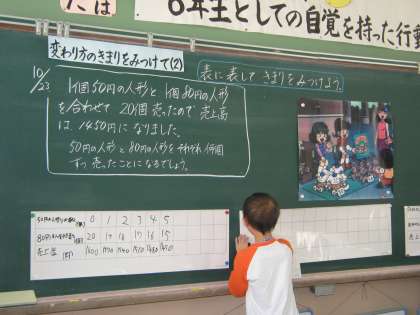 たは
6年生としての自覚を持った行動
変わり方のきまりをみつけて(2)
表に表してきまりをみつけよう。
10/23
1個50円の人形と1個80円の人形
を合わせて20個売ったので売上高
は1450円になりました。
50円の人形と80円の人形をそれぞれ何個
ずつ売ったことになるでしょう。
0 1 2 3 4 5
20 19 18 17 16 15
売上高(円) 1600 1570 1540 1510 1480 1450